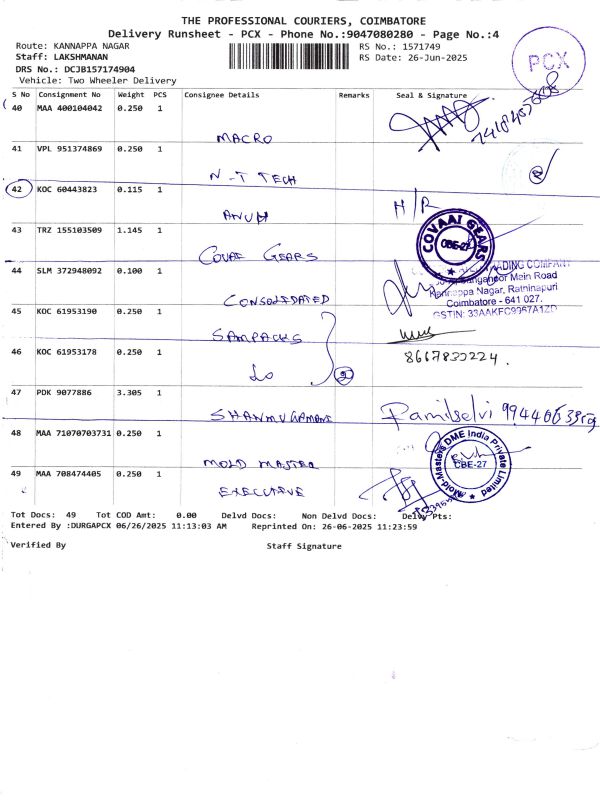 THE PROFESSIONAL COURIERS, COIMBATORE
Delivery Runsheet - PCX - Phone No.:9047080280 - Page No.:4
Route: KANNAPPA NAGAR RS No.: 1571749
Staff: LAKSHMANAN RS Date: 26-Jun-2025
DRS No.: DCJB157174904
Vehicle: Two Wheeler Delivery
PCX
S No Consignment No Weight PCS Consignee Details Remarks Seal & Signature
40 MAA 400104042 0.250 1
MACRO
41 VPL 951374869 0.250 1
N-T TECH
42 KOC 60443823 0.115 1 H/R
43 TRZ 155103509 1.145 1
COVAI GEARS
COVAAI GEARS
CBE-27
44 SLM 372948092 0.100 1
TRADING COMPANY
Sanganoor Main Road
Kannappa Nagar, Ratninapuri
Coimbatore - 641 027.
GSTIN: 33AAKFC9367A1ZD
CONSOLEDARED
45 KOC 61953190 0.250 1
SAMPACKS
46 KOC 61953178 0.250 1 8667833224.
Do 2
47 PDK 9077886 3.305 1
SHANMUGAMANI
Pamilselvi
48 MAA 71070703731 0.250 1
Mold-Masters DME India Private Limited
CBE-27
MOLD MASTER
49 MAA 708474405 0.250 1
EXECUTIVE
Tot Docs: 49 Tot COD Amt: 0.00 Delvd Docs: Non Delvd Docs: Delvy Pts:
Entered By :DURGAPCX 06/26/2025 11:13:03 AM Reprinted On: 26-06-2025 11:23:59
Verified By Staff Signature